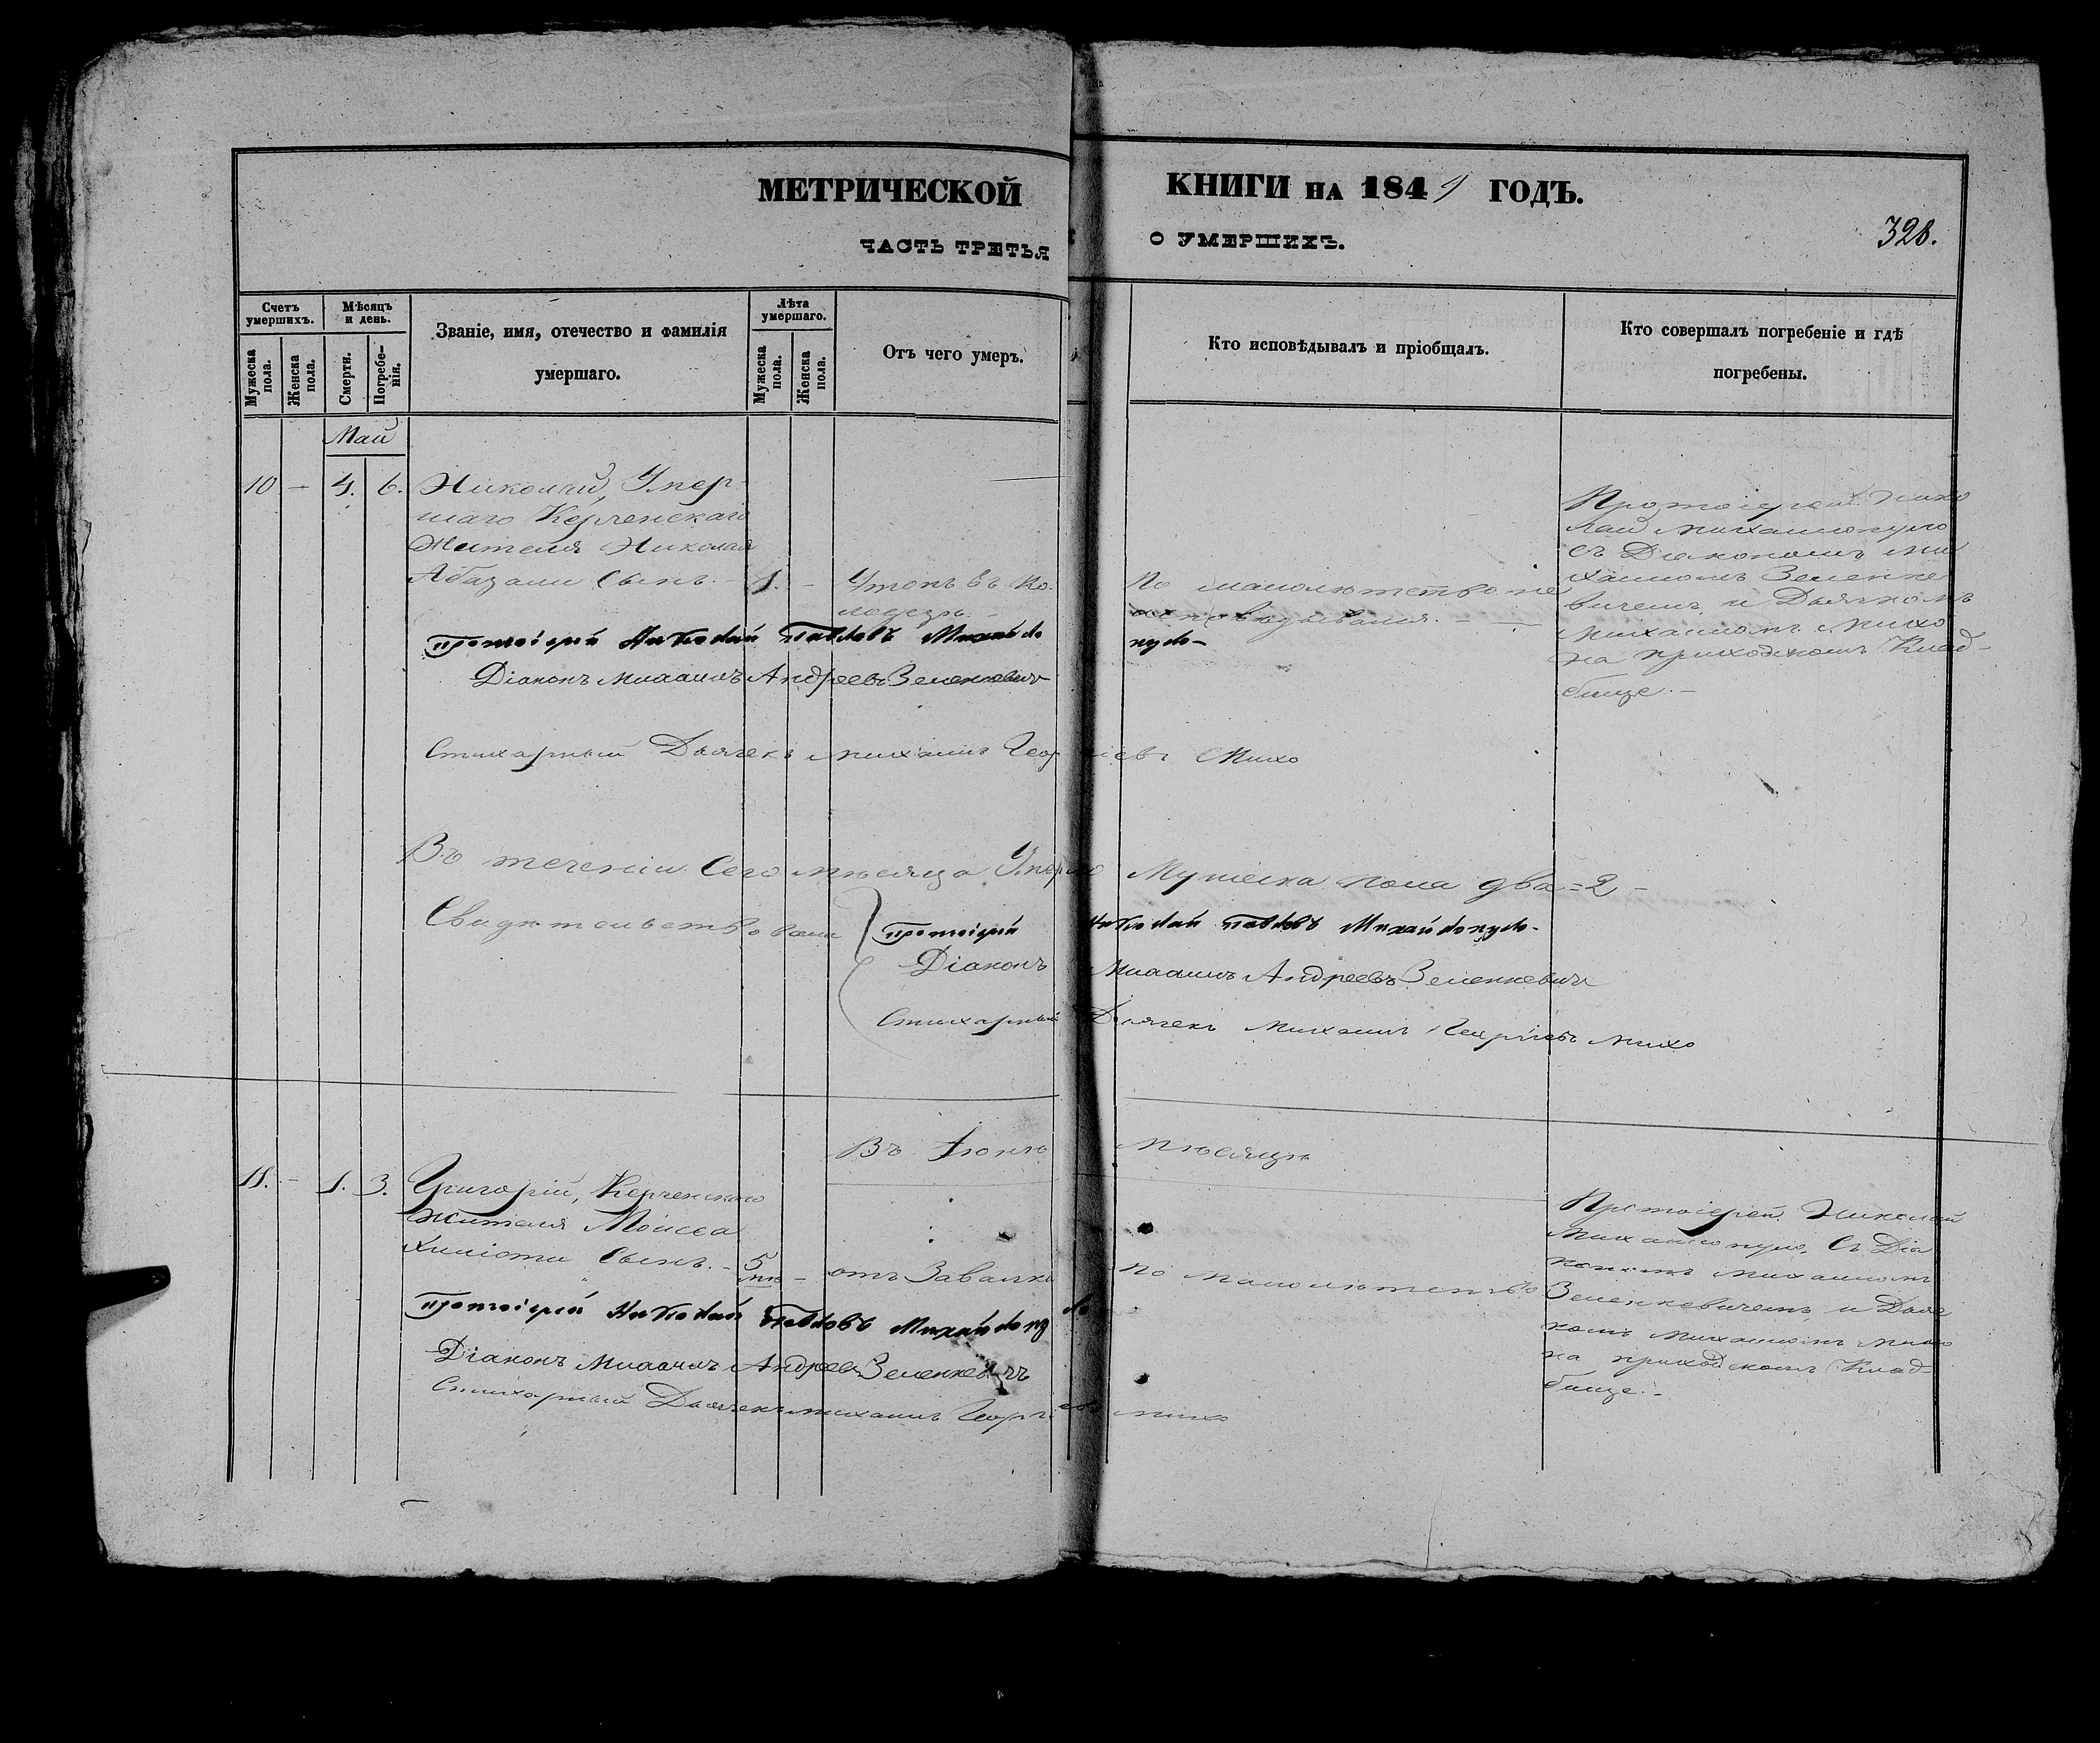 МЕТРИЧЕСКОЙ КНИГИ НА 1849 ГОДЪ.
ЧАСТЬ ТРЕТЬЯ О УМЕРШИХЪ.
328.
Счетъ умершихъ.
Мужеска пола.
Женска пола.
Мѣсяцъ и день.
Смерти.
Погребенія.
Званіе, имя, отечество и фамилія
умершаго.
Лѣта умершаго.
Мужеска пола.
Женска пола.
Отъ чего умеръ.
Кто исповѣдывалъ и пріобщалъ.
Кто совершалъ погребеніе и гдѣ
погребены.
Май
10 — 4. 6.
Николай, Умер-
шаго Керченскаго
Жителя Николая
Абазали Сынъ. — 1. —
Утопъ въ Ко-
лодезь. —
По малолетству не
исповѣдывался. —
Протоіерей Нико
лай Михайлопуло
съ Діакономъ Ми
хаиломъ Зеленке
вичемъ, и Дьячкомъ
Михаиломъ Михо
на приходскомъ Клад-
бище. —
Протоіерей Николай Павловъ Михайло
пуло-
Діаконъ Михаилъ Андреевъ Зеленкевичъ
Стихарный Дьячекъ Михаилъ Георгіевъ Михо
Въ теченіи Сего мѣсяца Умерло Мужеска пола два = 2 —
Свидѣтельствовали
Протоіерей Николай Павловъ Михайлопуло-
Діаконъ Михаилъ Андреевъ Зеленкевичъ
Стихарный Дьячекъ Михаилъ Георгіевъ Михо
Въ Іюнѣ мѣсяцѣ
11. — 1. 3.
Григорій, Керченскаго
жителя Моисея
Хиліоти Сынъ. — 5 —
отъ Завалки
по малолетству
Протоіерей Николай
Михайлопуло, Съ Діа
кономъ Михаиломъ
Зеленкевичемъ, и Дьяч
комъ Михаиломъ Михо
на приходскомъ Клад-
бище. —
Протоіерей Николай Павловъ Михайлопуло
Діаконъ Михаилъ Андреевъ Зеленкевичъ
Стихарный Дьячекъ Михаилъ Георгіевъ Михо